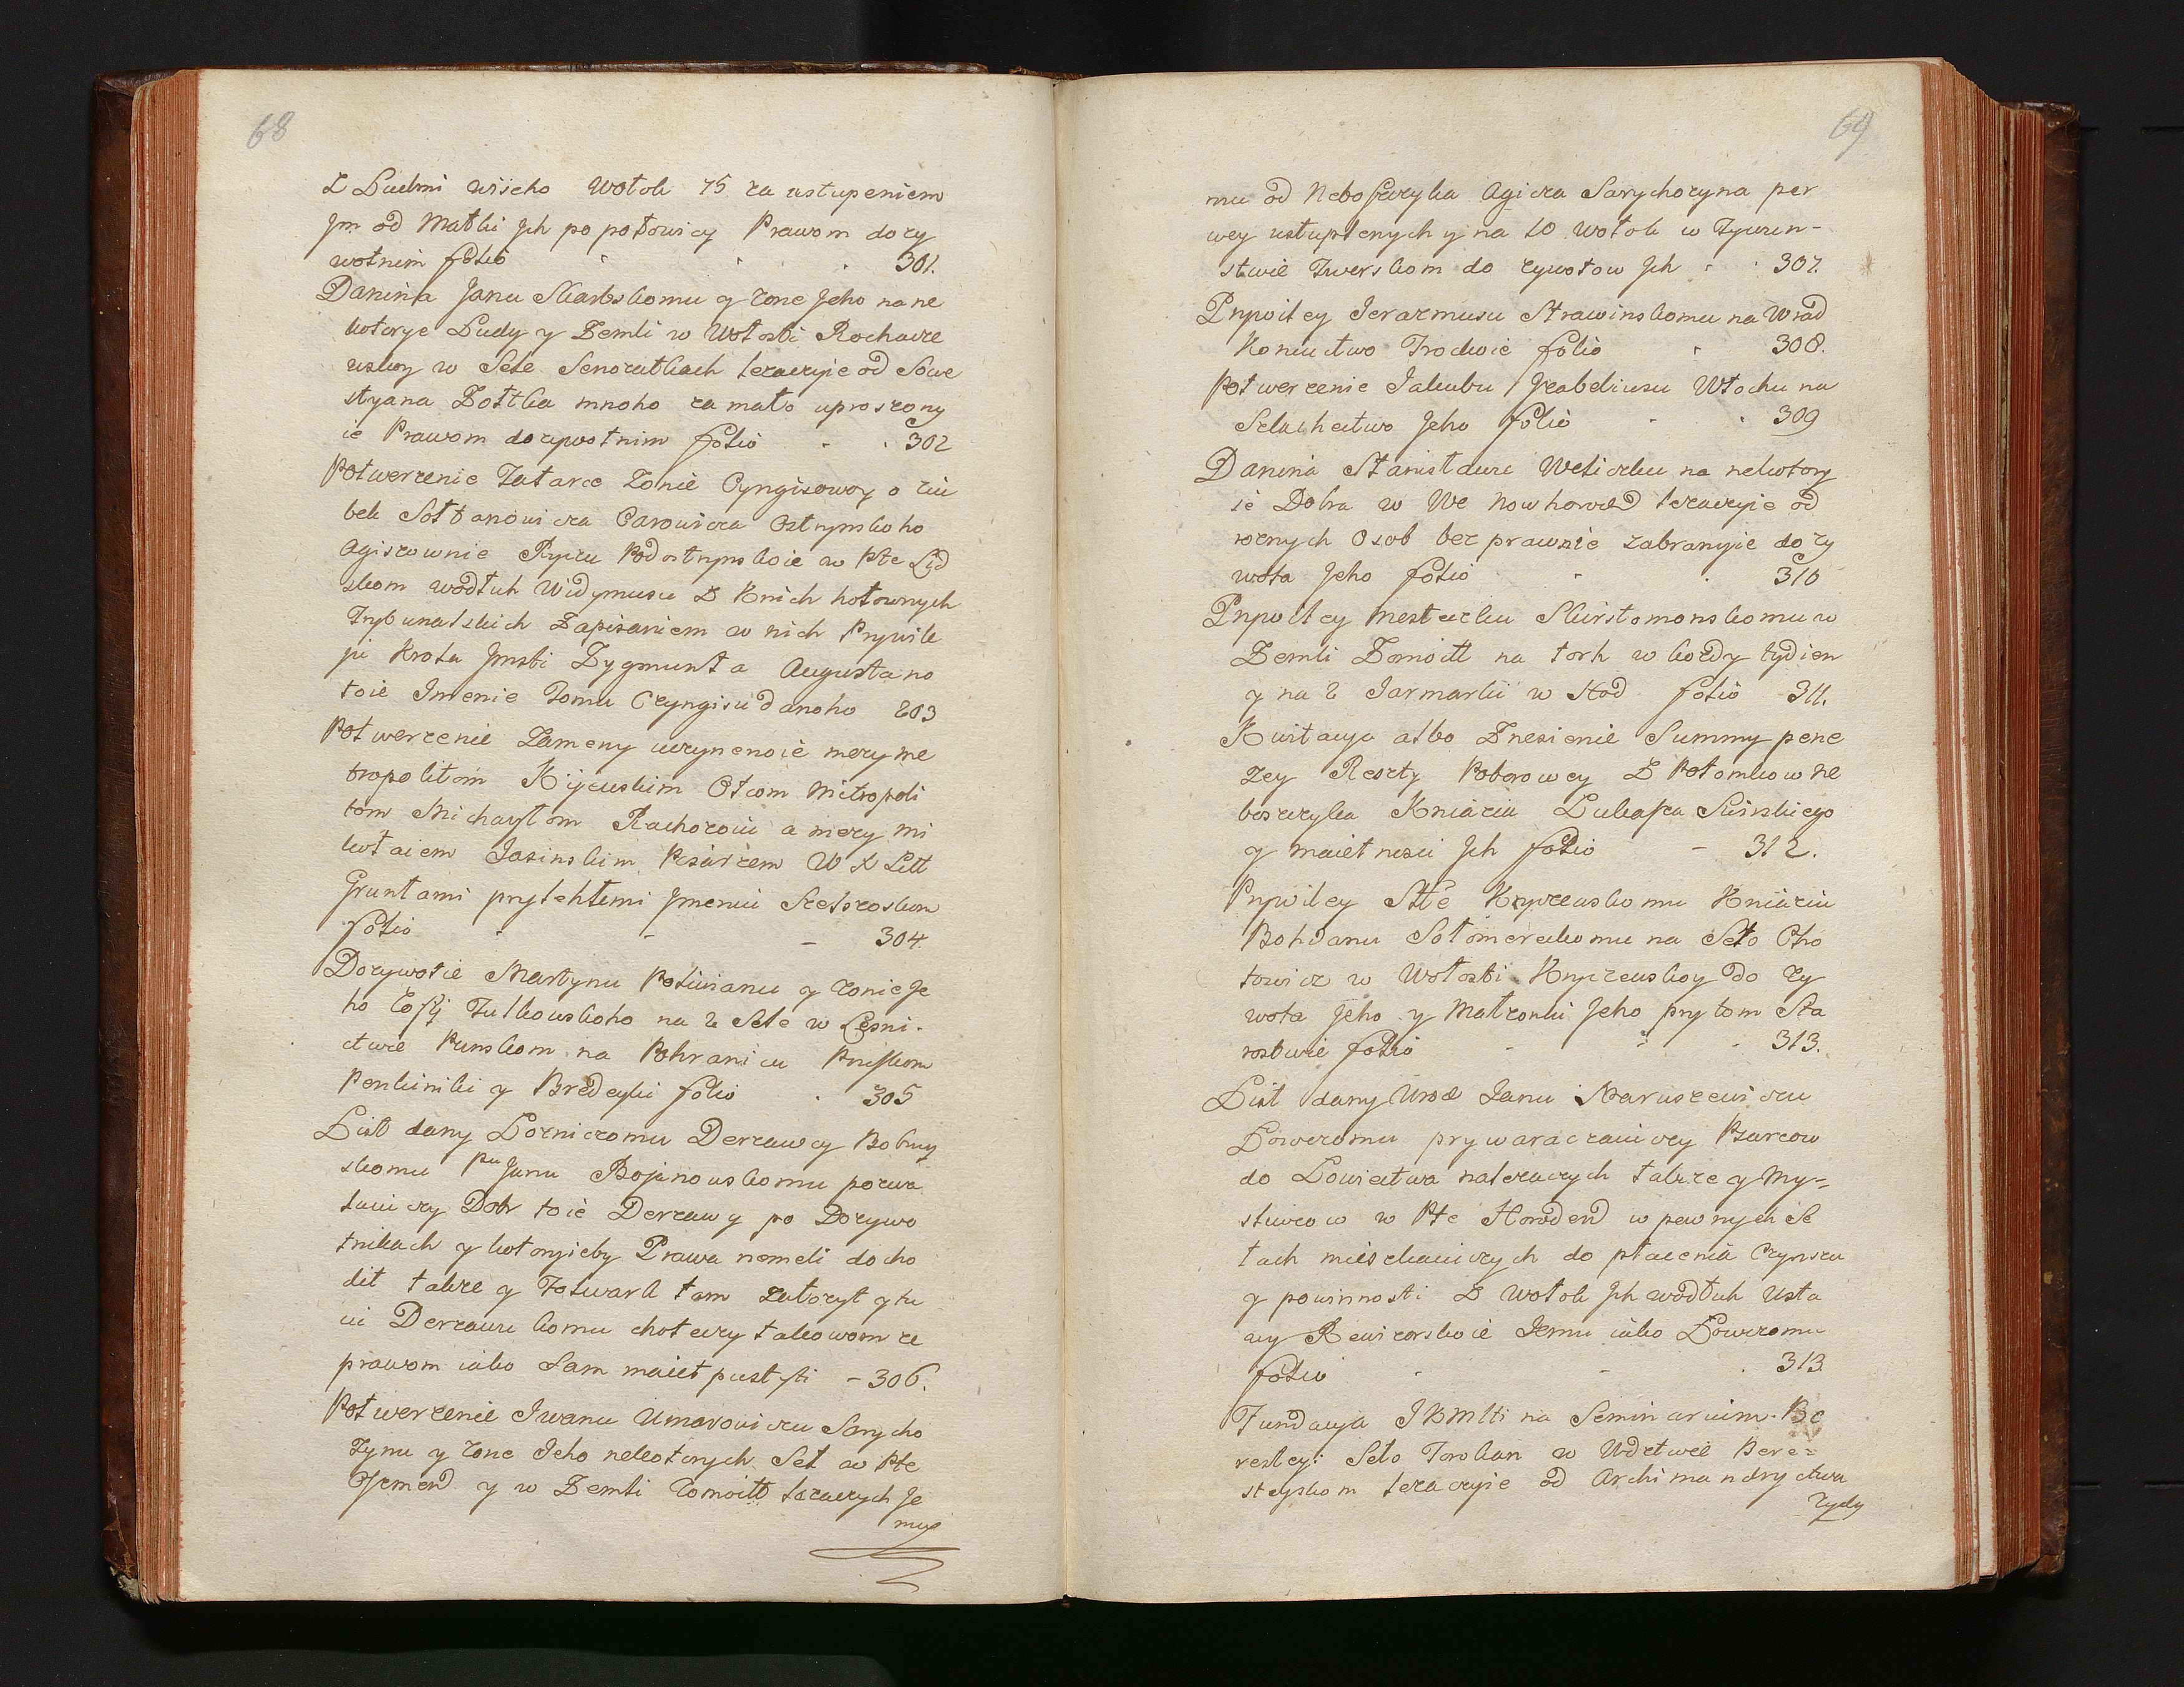 68
Z Ludmi wiseho Wołok 15 za ustupeniem
Jm od Matki Jch po połowicy Prawom dozy
wotnim folio 301.
Danina Janu Skarbskomu y zone Jeho na ne
kotorye Ludy y Zemli w Wołosti Rochacze
wskoy w Sele Senozatkach lezaczyie od Sowe
styana Zołtka mnoho za mało uproszony
ie Prawom dozywotnim folio 302
Potwerzenie Tatarce Zonie Cyngisowoy o ziu
bek Sołtanowicza Carowicza Ostrynskoho
Agiszownie Ryczu Podostrynskoie w Pte Lid
skom wodłuh Widymusu Z Knich hołownych
Trybunalskich Zapisaniem w nich Prywile
ju Krola Jmsti Zygmunta Augusta no
toie Imenie Tomu Czyngisu danoho 203
Potwerzenie Zameny uczynenoie mezy me
tropolitom Kijeuskim Otcom Mitropoli
tom Michayłom Rachozoiu a mezy mi
kołaiem Jasinskim Pisarzem W X Litt
Gruntami prylehłemi Jmeniu Szeszoskom
folio 304.
Dozywotie Martynu Poliwianu y zonie Je
ho Zofij Tulkowskoho na 2 Sele w Lesni-
ctwie Punskom na Pohraniczu Pruskom
Penkiniki y Bredeyki folio 305
List dany Lozniczomu Derzawcy Bobruy
skomu Pu Janu Bojanouskomu pozwa
laiuczy Dobr toie Derzawy po Dozywo
tnikach y kotoryieby Prawa nemeli docho
dit takze y Folwark tam zalozyt y tu
iu Derzawu komu choteczy takowom ze
prawom iako Sam maiet pustyti - 306.
Potwerzenie Iwanu Umarowiczu Sarycho
zynu y zone Jeho nekotorych Seł w Pte
Oszmend y w Zemli Zomoitt lezaczych Je
mu
69
mu od Neboszczyka Agisza Sarychozyna per
wey ustuplenych y na 10 wołok w Tywun-
stwie Twerskom do zywotow Jch 307.
Prywiley Ierazmusu Strawinskomu na Wrad
Koniuctwo Trockoie folio 308.
Potwerzenie Jakubu Grabeliusu Włochu na
Szlachectwo Jeho folio 309
Danina Stanisławu Weliczku na nekotory
ie Dobra w We Nowhorod lezaczyie od
roznych Osob bez prawnie zabranyie do zy
wota Jeho folio 310
Prywiley mesteczku Skirstomonskomu w
Zemli Zomoitt na torh w kozdy tydien
y na 2 Jarmarki w Hod folio 311.
Kwitacya albo Znesienie Summy pene
zey Reszty Poborowey Z Potomkow ne
boszczyka Kniazia Lukasza Swirskiego
y maietnosci Jch folio - 312.
Prywiley Stte Kryczeuskomu Kniaziu
Bohdanu Sołomereckomu na Seło Cho
towicz w Wołosti Kryczeuskoy do zy
wota Jeho y Małzonki Jeho pry tom Sta
rostwie folio 313.
List dany Urod Janu Maruszewiczu
Łowczomu prywaraczaiuczy Psarcow
do Lowiectwa nalezaczych takze y My-
sliwcow w Pte Horodend w pewnych Se
łach mieszkaiuczych do płacenia Czynszu
y powinnosti Z Wołok Jch wodłuh Usta
wy Rewizorskoie Jemu iako Łowczomu
folio 313
Fundacya JKMtti na Seminarium. Be
restey: Seło Torokan w Wdztwie Bere-
steyskom lezaczyie od Archimandryctwa
Zydy